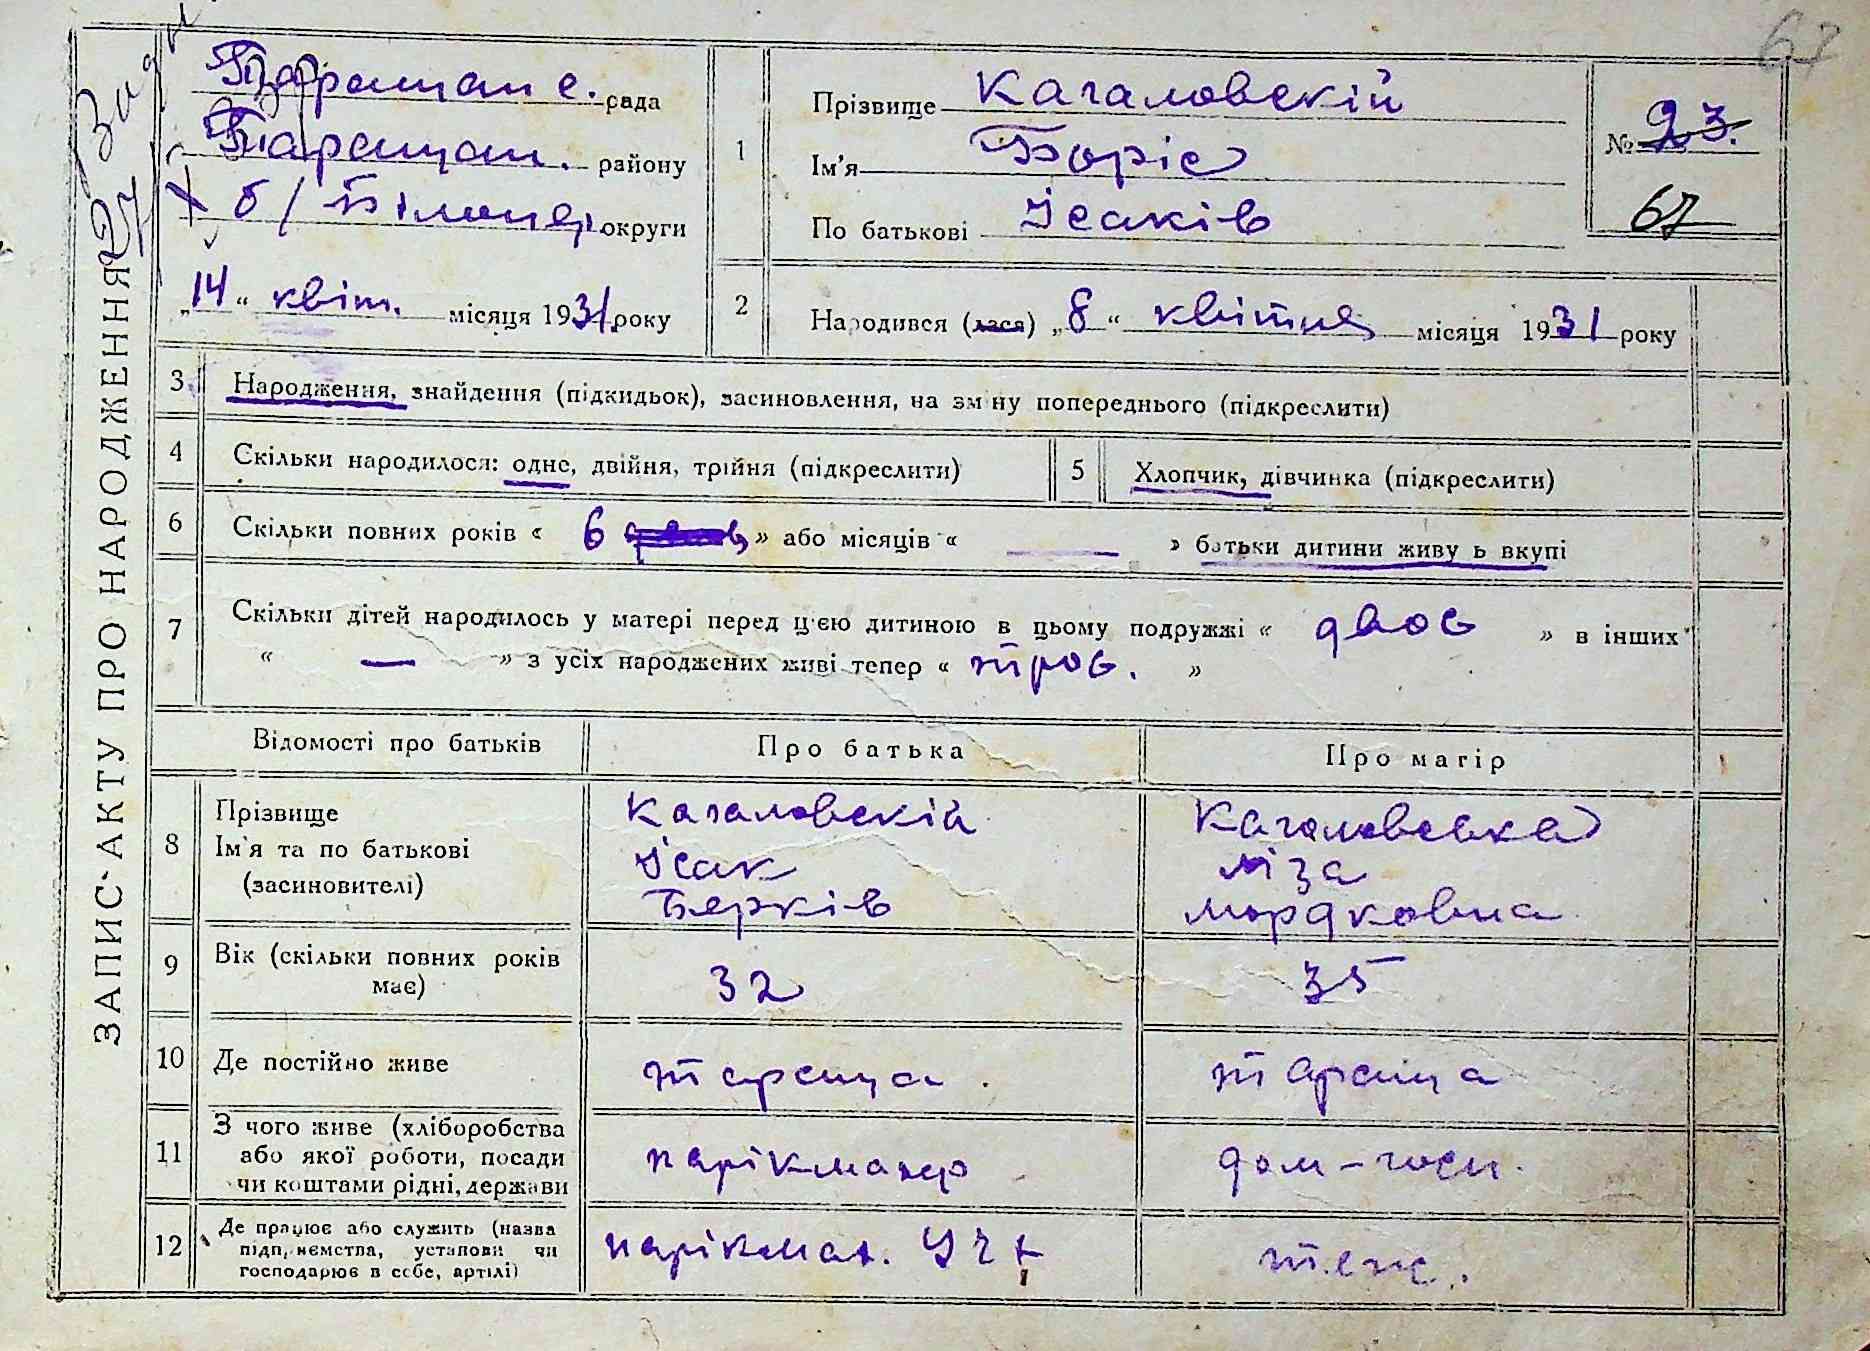 67
ЗАПИС АКТУ ПРО НАРОДЖЕННЯ
27
Таращан с. рада
Таращан. району
б/ Білоцер. округи
„14“ квіт. місяця 1931 року
1
Прізвище Кагаловскій
Ім’я Боріс
По батькові Ісаків
№ 23.
67
2
Народився (лася) „8“ квітня місяця 1931 року
3 Народження, знайдення (підкидьок), засиновлення, на зміну попереднього (підкреслити)
4 Скільки народилося: одне, двійня, трійня (підкреслити)
5 Хлопчик, дівчинка (підкреслити)
6 Скільки повних років « 6 » або місяців « — » батьки дитини живуть вкупі
7 Скільки дітей народилось у матері перед цією дитиною в цьому подружжі « двоє » в інших
« — » з усіх народжених живі тепер « троє. »
Відомості про батьків Про батька Про матір
8 Прізвище
Ім’я та по батькові
(засиновителі)
Кагаловскій
Ісак
Берків
Кагаловська
Ліза
Мордковна
9 Вік (скільки повних років
має)
32
35
10 Де постійно живе
Тараща.
Тараща
11 З чого живе (хліборобства
або якої роботи, посади
чи коштами рідні, держави
парікмахер
дом-госп.
12 Де працює або служить (назва
підприємства, установи чи
господарює в себе, артілі)
парікмах.
теж.